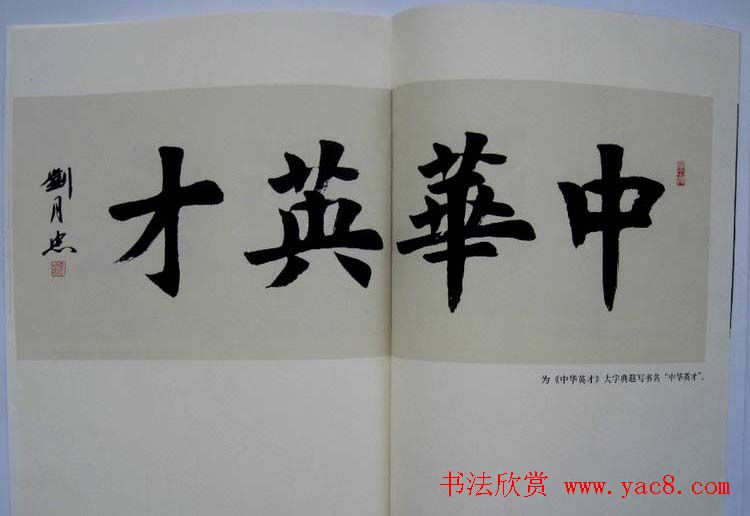 中華英才
劉月忠
为《中华英才》大字典题写书名“中华英才”。
书法欣赏 www.yac8.com